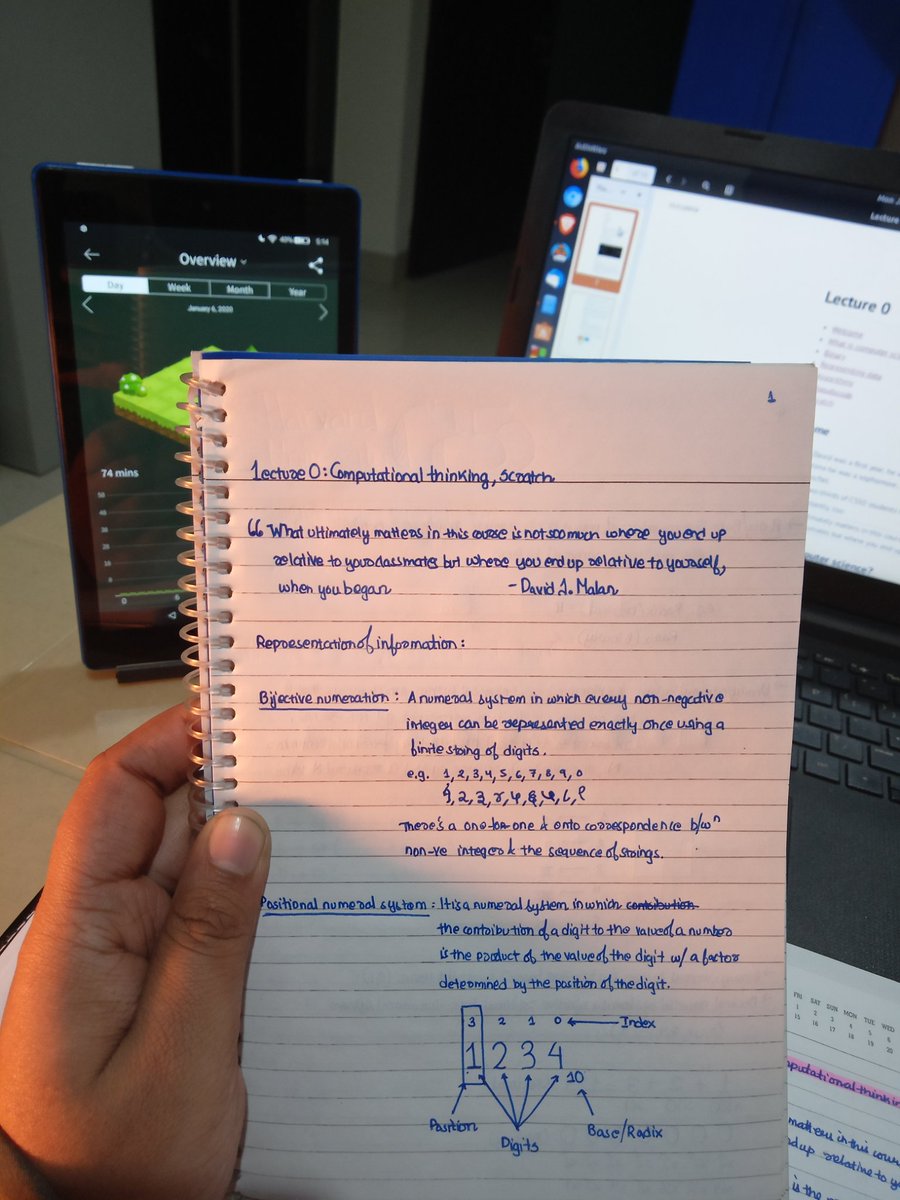 Overview
40% 5:14
Day Week Month Year
January 6, 2020
74 mins
0 6
Activities
Lecture 0
Welcome
Binary
Representing data
1
Lecture 0: Computational thinking, Scratch
“ What ultimately matters in this course is not so much where you end up
relative to your classmates but where you end up relative to yourself,
when you began - David J. Malan
Representation of information:
Bijective numeration: A numeral system in which every non-negative
integer can be represented exactly once using a
finite string of digits.
e.g. 1, 2, 3, 4, 5, 6, 7, 8, 9, 0
There's a one-for-one & onto correspondence b/wn
non-ve integer & the sequence of strings.
Positional numeral system: It is a numeral system in which contribution
the contribution of a digit to the value of a number
is the product of the value of the digit w/ a factor
determined by the position of the digit.
3 2 1 0 Index
1 2 3 4 10
Position
Digits
Base/Radix
FRI SAT SUN MON TUE WED
1 2 3 4 5 6
15 16 17 18 19 20
putational thinkin
matters in this cour
nd up relative to y
is the